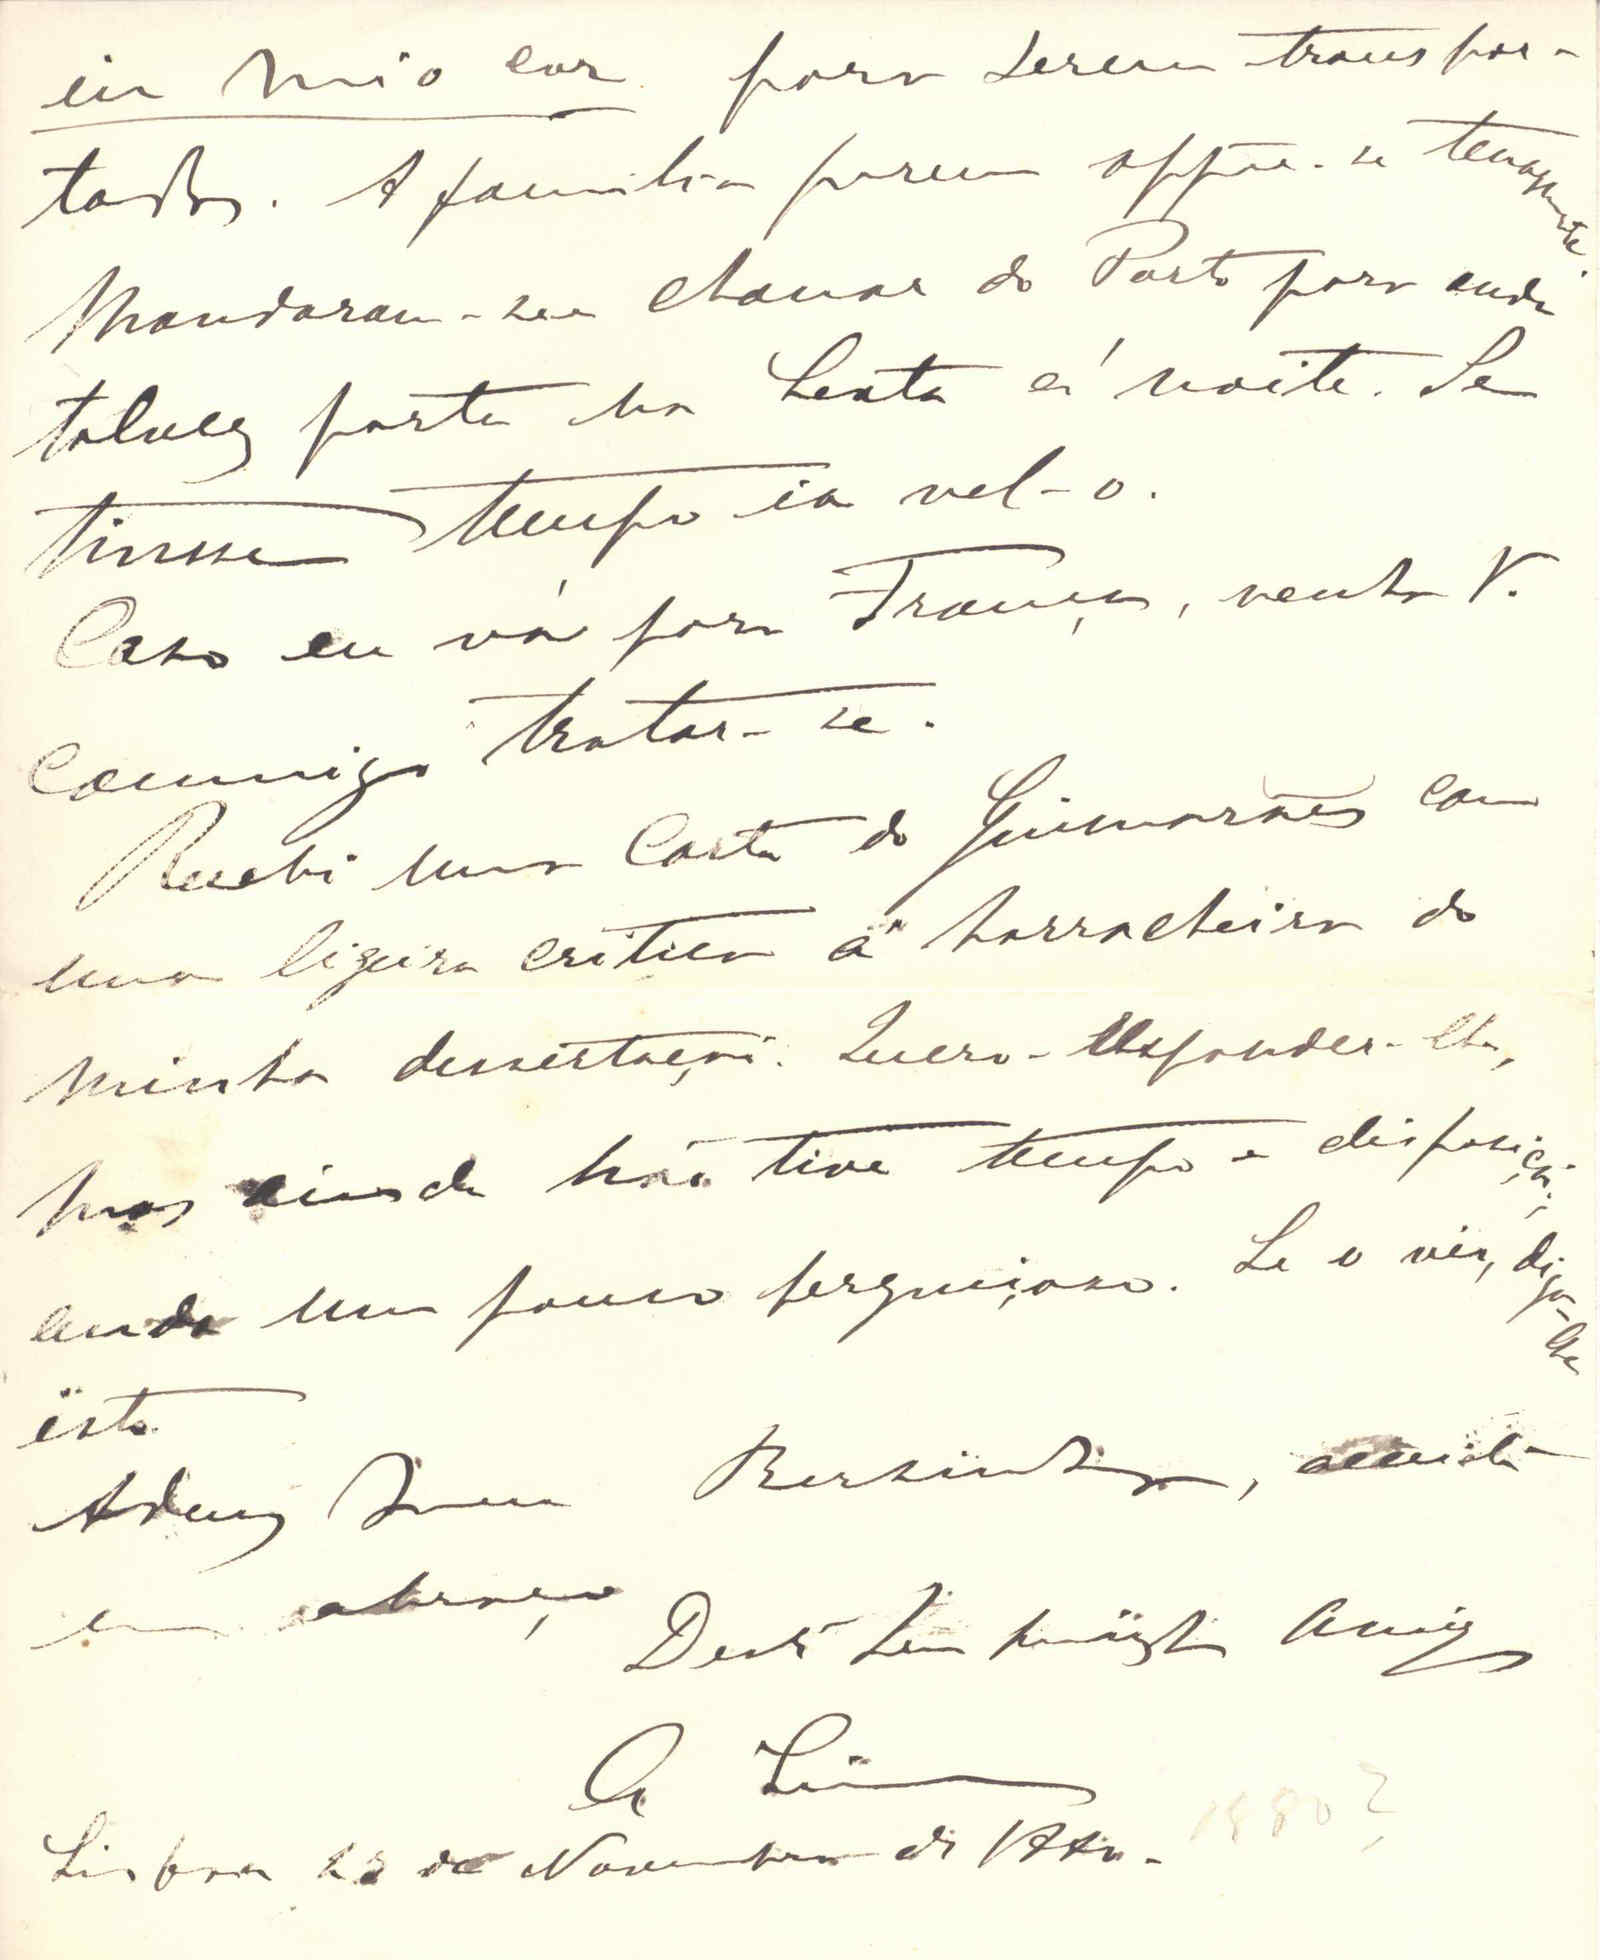 in mio cor para serem transpor-
tados. A familia porem oppõe-se tenazmente.
Mandaram-me chamar do Porto para onde
talvez parta na Sexta á noite. Se
tivesse tempo ia vel-o.
Caso eu vá para França, venha V.
commigo tratar-se.
Recebi uma carta do Guimarães com
uma ligeira critica á borracheira da
minha dissertação. Quero responder-lhe,
mas ainda não tive tempo e disposição;
ando um pouco perguiçoso. Se o vir, diga-lhe
isto.
Adeus Bernardino, acceite
um abraço
Deste seu amigo
Lisboa 22 de Novembro de 1880.
1880?